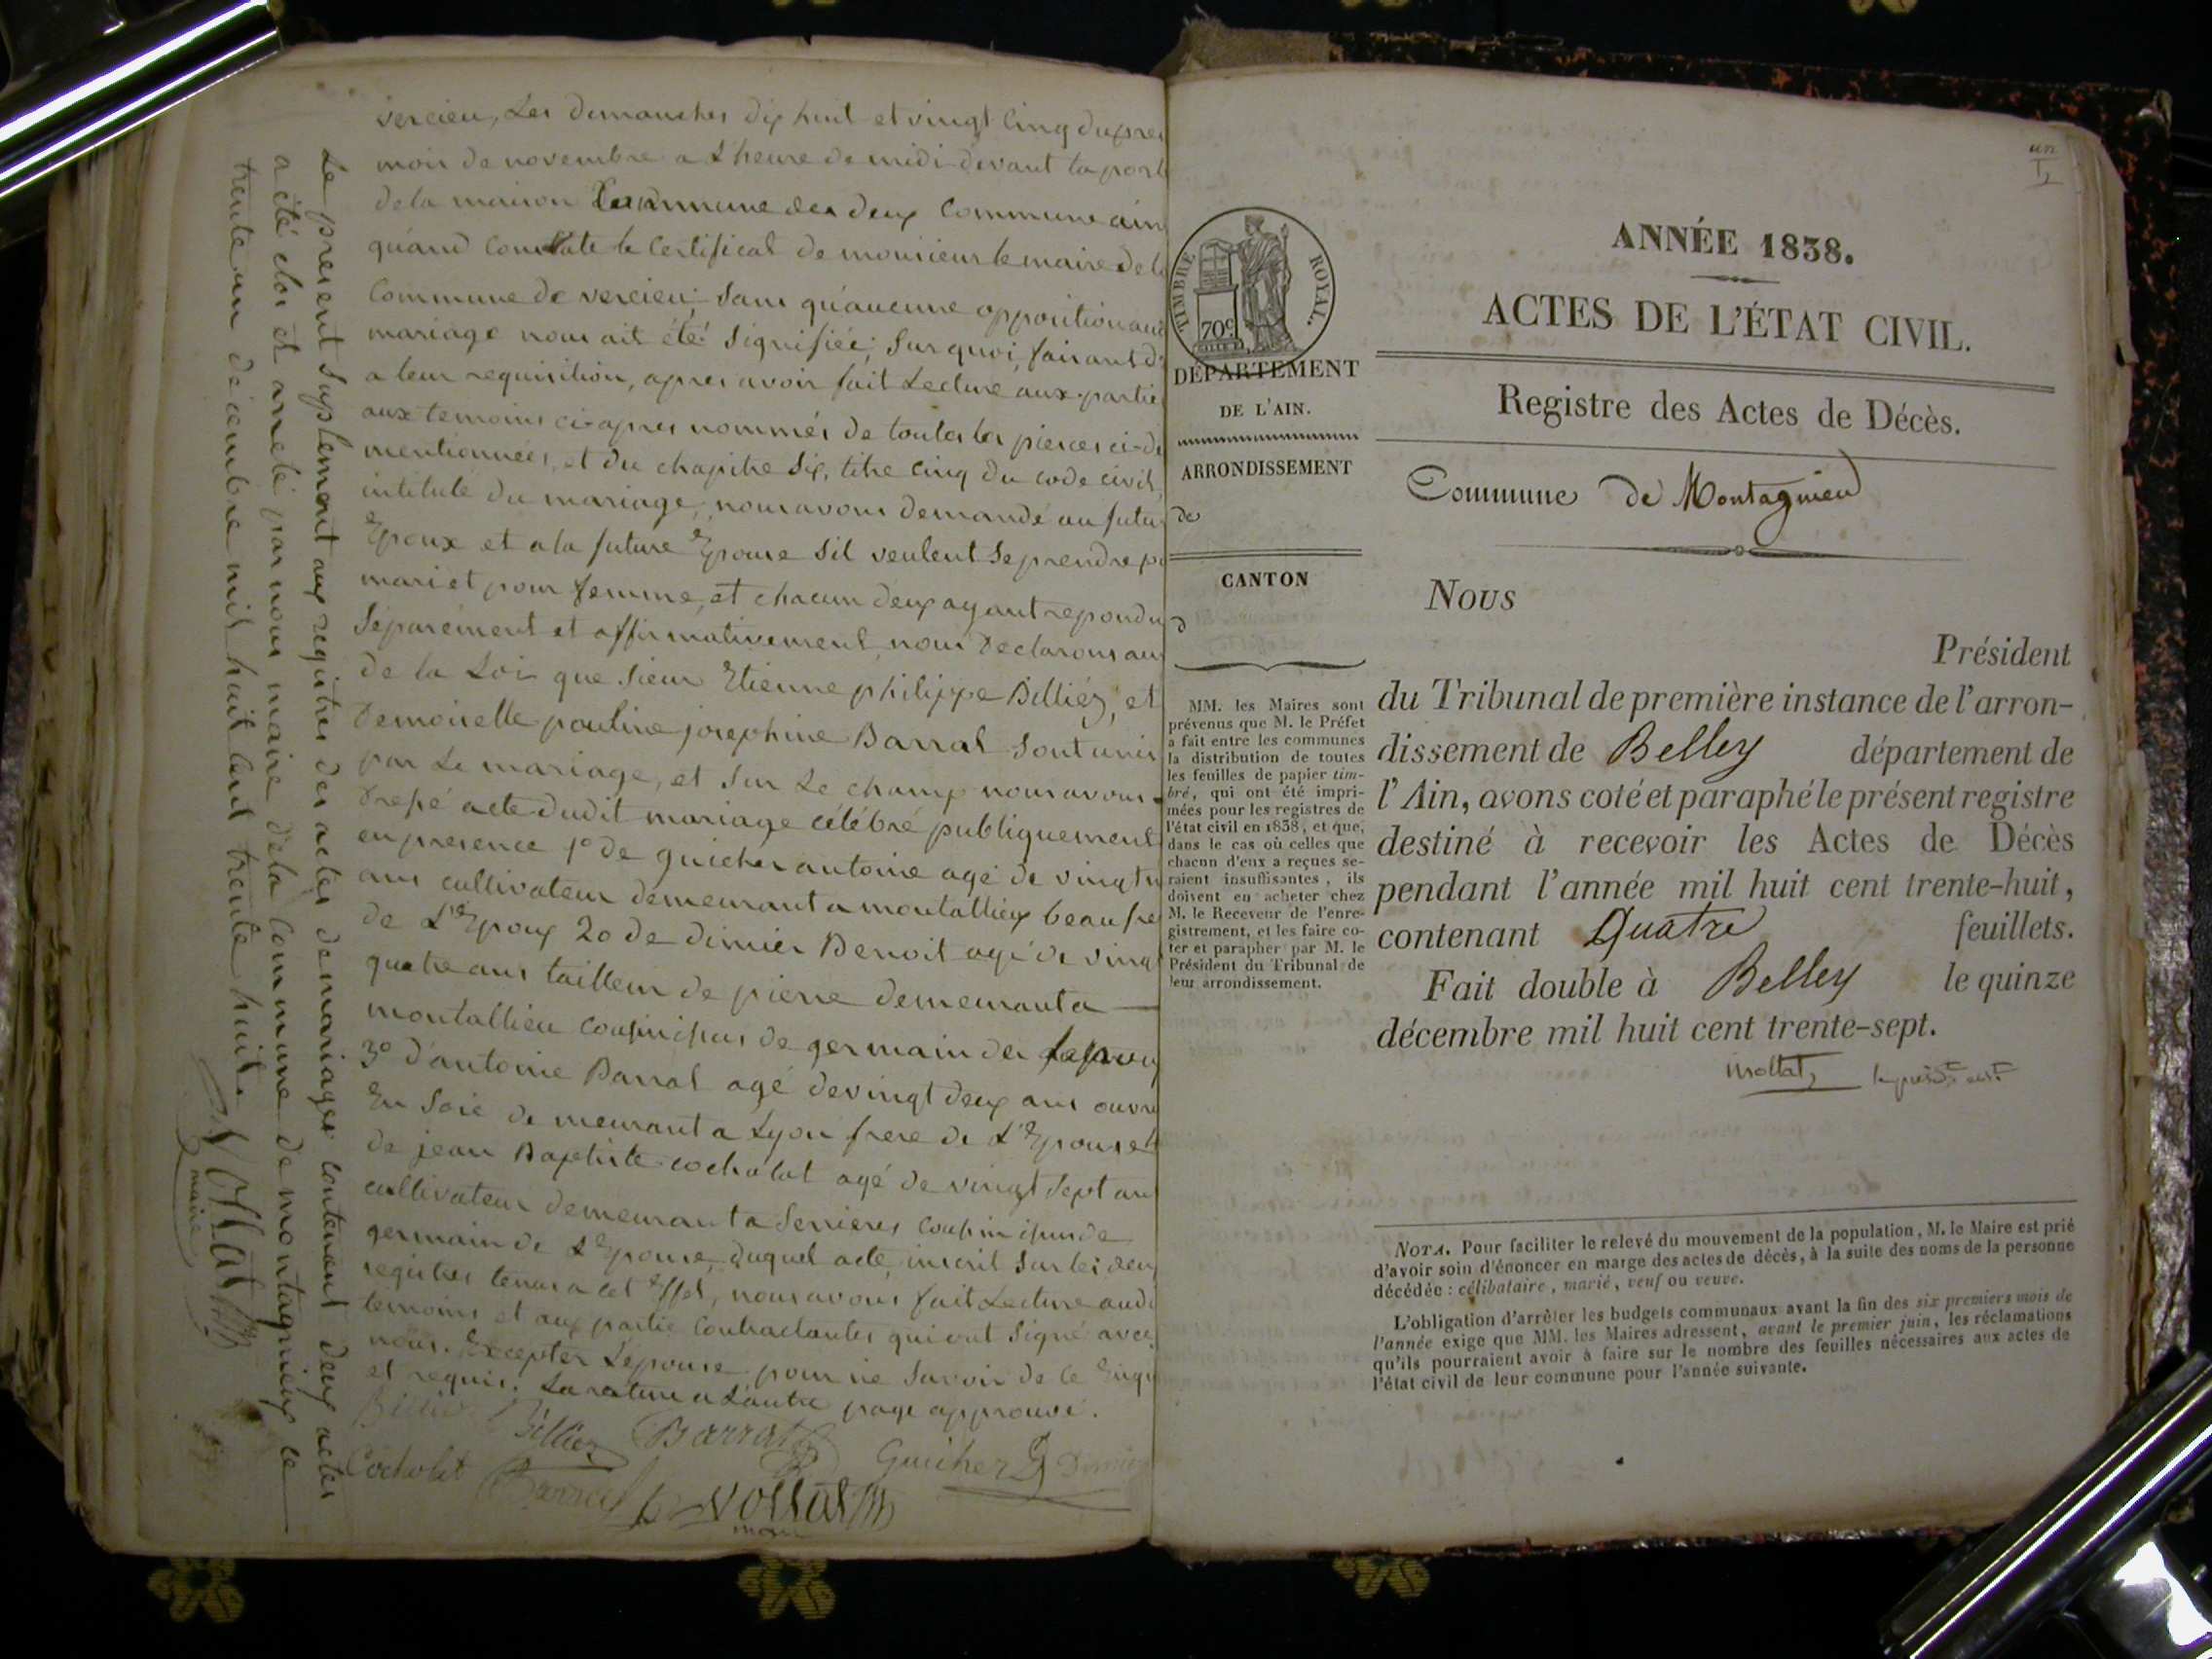 vercieu, Les dimanches dix huit et vingt Cinq du pres
mois de novembre a L'heure de midi devant la porte
de la maison Commune des deux Commune ain
quand Constate le Certificat de monsieur le maire de la
Commune de vercieu; sans qu'aucune opposition aud
mariage nous ait été signifiée; sur quoi, faisant d
a leur requisition, apres avoir fait Lecture aux partie
aux temoins ci-apres nommés de toutes les pieces ci-de
mentionnées, et du chapitre six, titre cinq du code civil,
intitulé du mariage, nous avons demandé au futu
Epoux et a la future Epouse s'il veulent se prendre po
mari et pour femme, et chacun deux ayant repondu
séparément et affirmativement, nous Declarons au
de la Loi que sieur Etienne philippe Billiez, et
Demoiselle pauline josephine Barral sont unis
par Le mariage, et sur Le champ nous avons
Drepé acte dudit mariage célébré publiquement
en presence 1o de guicher antoine agé de vingt
ans cultivateur demeurant a montallieu beau fre
de L'Epoux 2o de Dimier Benoit agé de vingt
quatre ans tailleur de pierre demeurant a
montallieu cousin issus de germain de
3o d'antoine Barral agé de vingt deux ans ouvri
En soie demeurant a Lyon frere de L'Epouse et
de jean Baptiste cocholat agé de vingt sept ans
cultivateur demeurant a serrieres cousin issus de
germain de L'Epouse, duquel acte, inscrit sur les deux
registres tenus a cet Effet, nous avons fait Lecture aud
temoins et aux partie Contractantes qui ont signé avec
nous. Excepter L'epouse pour ne savoir de ce Enqu
et requis. La rature a L'autre page approuvé.
Billiez Barral Guicher Dimier
Cocholat Barral
maire
Le present suplement aux registres des actes de mariages contenant deux actes
a été clos et arreté par nous maire de la Commune de montagnieux le
trente un décembre mil huit cent trente huit.
maire
un
1
TIMBRE ROYAL.
70c
DÉPARTEMENT
DE L'AIN.
ARRONDISSEMENT
de
CANTON
d
MM. les Maires sont
prévenus que M. le Préfet
a fait entre les communes
la distribution de toutes
les feuilles de papier tim-
bré, qui ont été impri-
mées pour les registres de
l'état civil en 1838, et que,
dans le cas où celles que
chacun d'eux a reçues se-
raient insuffisantes, ils
doivent en acheter chez
M. le Receveur de l'enre-
gistrement, et les faire co-
ter et parapher par M. le
Président du Tribunal de
leur arrondissement.
ANNÉE 1838.
ACTES DE L'ÉTAT CIVIL.
Registre des Actes de Décès.
Commune de Montagnieu
Nous
Président
du Tribunal de première instance de l'arron-
dissement de Belley département de
l'Ain, avons coté et paraphé le présent registre
destiné à recevoir les Actes de Décès
pendant l'année mil huit cent trente-huit,
contenant Quatre feuillets.
Fait double à Belley le quinze
décembre mil huit cent trente-sept.
NOTA. Pour faciliter le relevé du mouvement de la population, M. le Maire est prié
d'avoir soin d'énoncer en marge des actes de décès, à la suite des noms de la personne
décédée : célibataire, marié, veuf ou veuve.
L'obligation d'arrêter les budgets communaux avant la fin des six premiers mois de
l'année exige que MM. les Maires adressent, avant le premier juin, les réclamations
qu'ils pourraient avoir à faire sur le nombre des feuilles nécessaires aux actes de
l'état civil de leur commune pour l'année suivante.